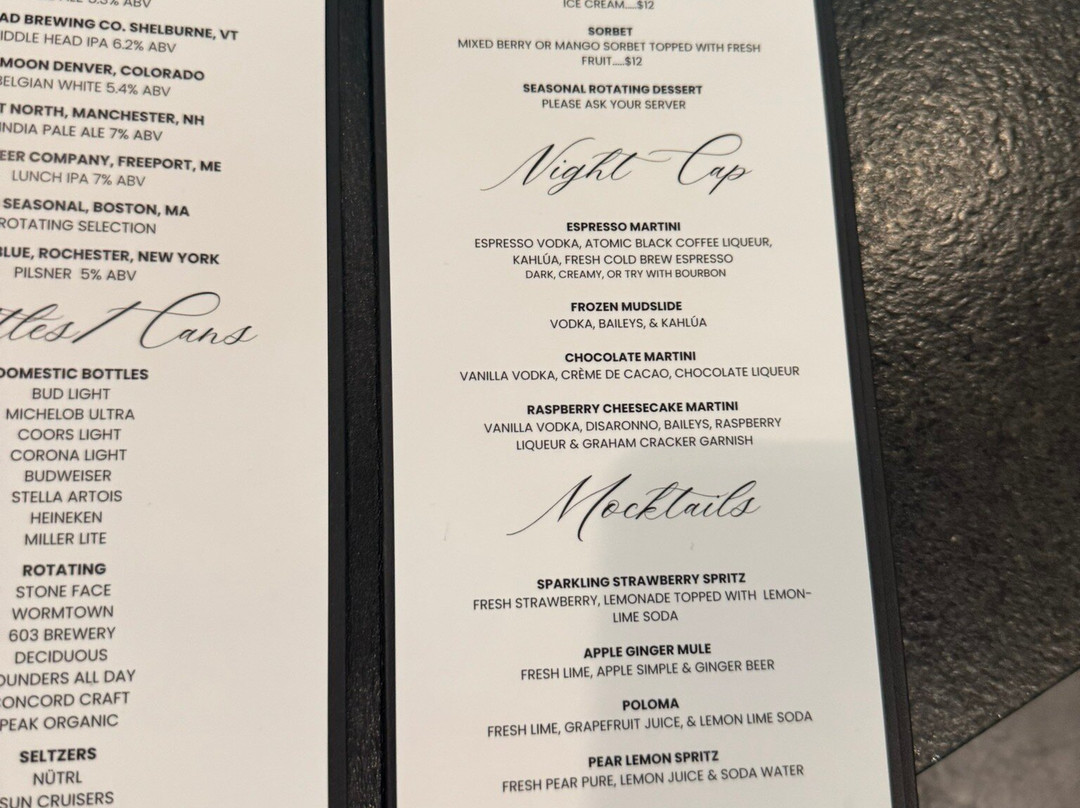 5.3% ABV
AD BREWING CO. SHELBURNE, VT
IDDLE HEAD IPA 6.2% ABV
MOON DENVER, COLORADO
BELGIAN WHITE 5.4% ABV
T NORTH, MANCHESTER, NH
INDIA PALE ALE 7% ABV
EER COMPANY, FREEPORT, ME
LUNCH IPA 7% ABV
SEASONAL, BOSTON, MA
ROTATING SELECTION
BLUE, ROCHESTER, NEW YORK
PILSNER 5% ABV
ttles / Cans
DOMESTIC BOTTLES
BUD LIGHT
MICHELOB ULTRA
COORS LIGHT
CORONA LIGHT
BUDWEISER
STELLA ARTOIS
HEINEKEN
MILLER LITE
ROTATING
STONE FACE
WORMTOWN
603 BREWERY
DECIDUOUS
OUNDERS ALL DAY
CONCORD CRAFT
PEAK ORGANIC
SELTZERS
NÜTRL
SUN CRUISERS
ICE CREAM.....$12
SORBET
MIXED BERRY OR MANGO SORBET TOPPED WITH FRESH
FRUIT.....$12
SEASONAL ROTATING DESSERT
PLEASE ASK YOUR SERVER
Night Cap
ESPRESSO MARTINI
ESPRESSO VODKA, ATOMIC BLACK COFFEE LIQUEUR,
KAHLÚA, FRESH COLD BREW ESPRESSO
DARK, CREAMY, OR TRY WITH BOURBON
FROZEN MUDSLIDE
VODKA, BAILEYS, & KAHLÚA
CHOCOLATE MARTINI
VANILLA VODKA, CRÈME DE CACAO, CHOCOLATE LIQUEUR
RASPBERRY CHEESECAKE MARTINI
VANILLA VODKA, DISARONNO, BAILEYS, RASPBERRY
LIQUEUR & GRAHAM CRACKER GARNISH
Mocktails
SPARKLING STRAWBERRY SPRITZ
FRESH STRAWBERRY, LEMONADE TOPPED WITH LEMON-
LIME SODA
APPLE GINGER MULE
FRESH LIME, APPLE SIMPLE & GINGER BEER
POLOMA
FRESH LIME, GRAPEFRUIT JUICE, & LEMON LIME SODA
PEAR LEMON SPRITZ
FRESH PEAR PURE, LEMON JUICE & SODA WATER